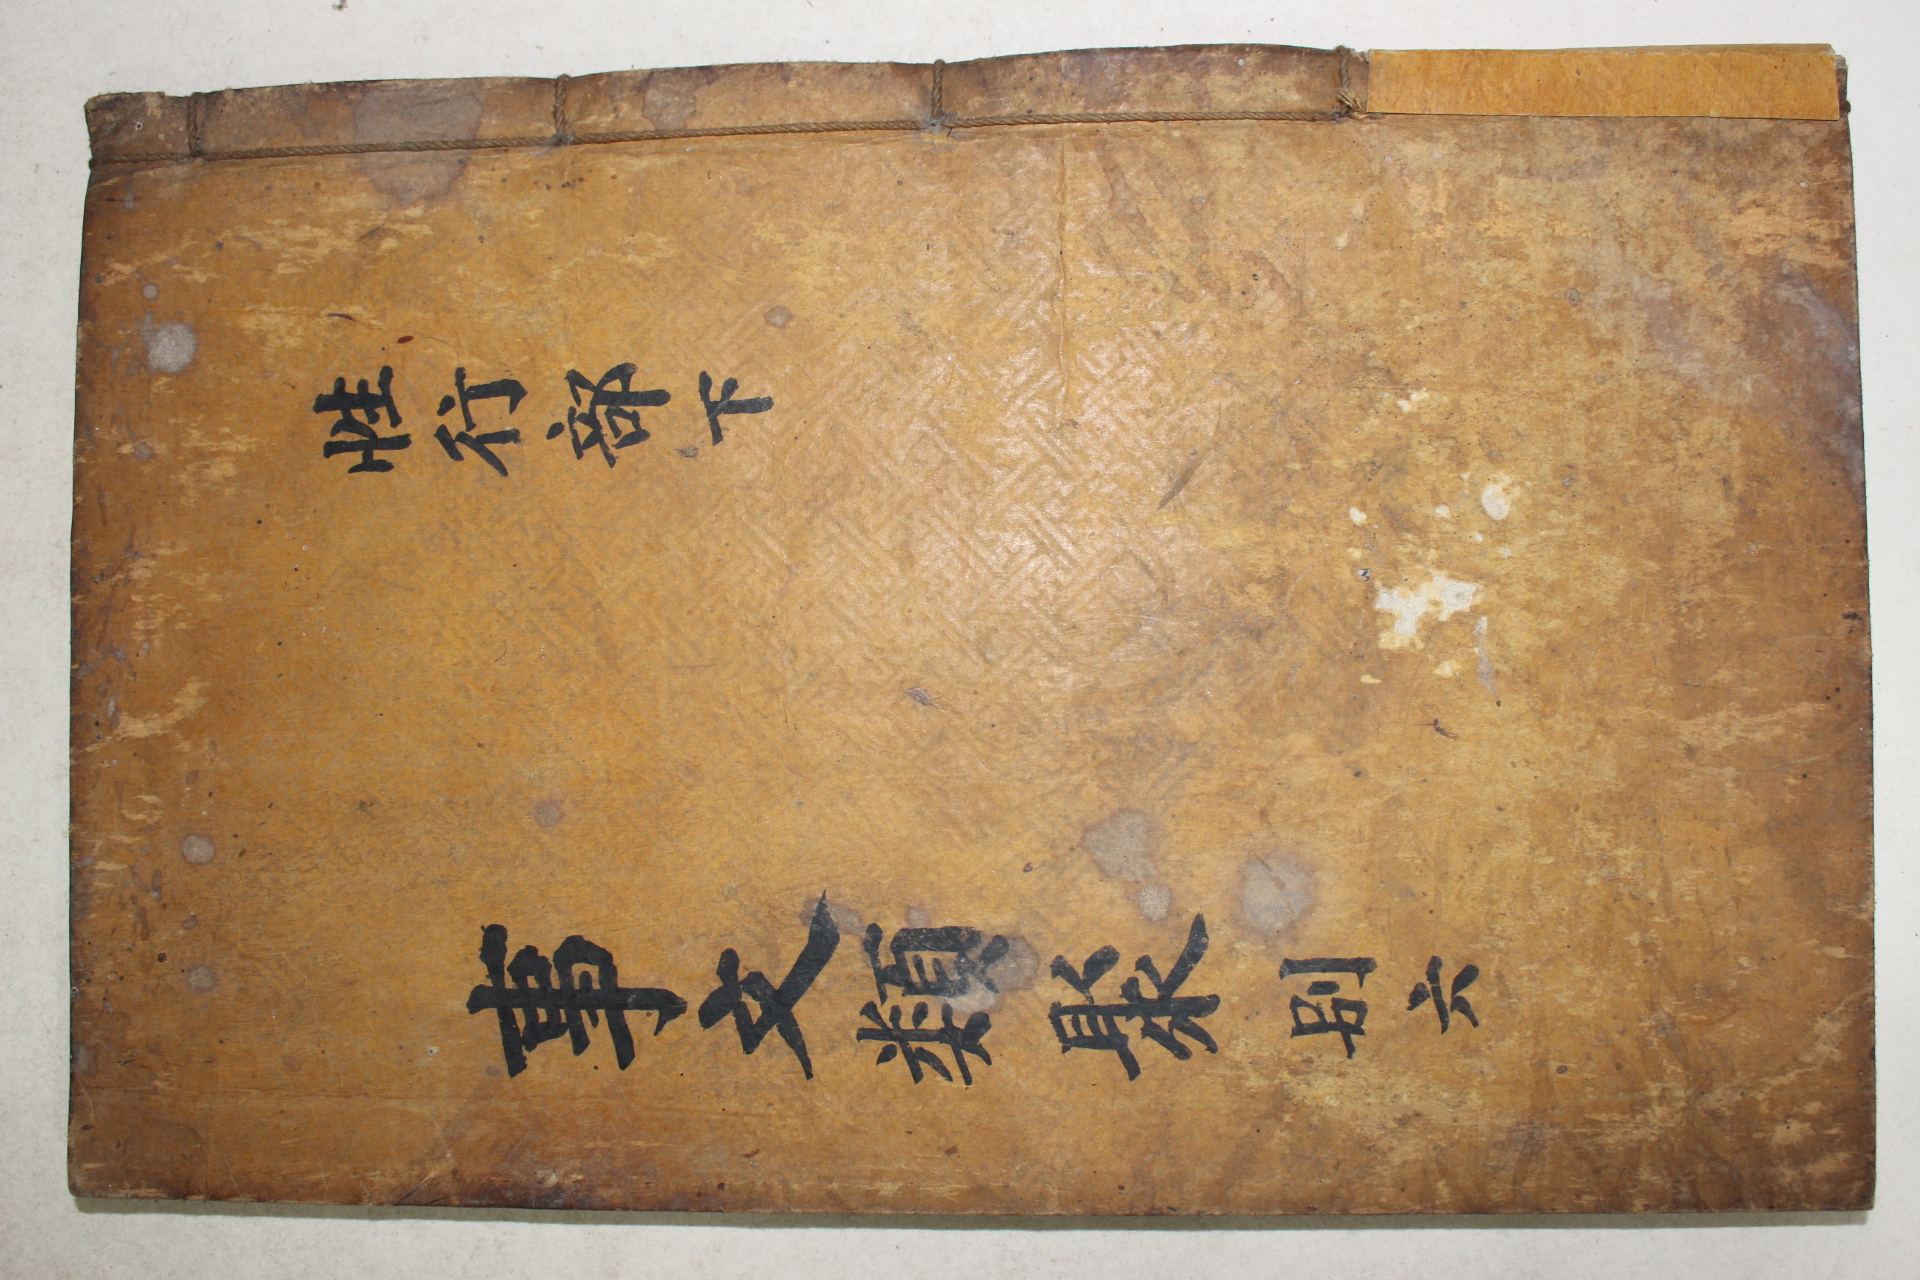 事文類聚 別六
性行部下